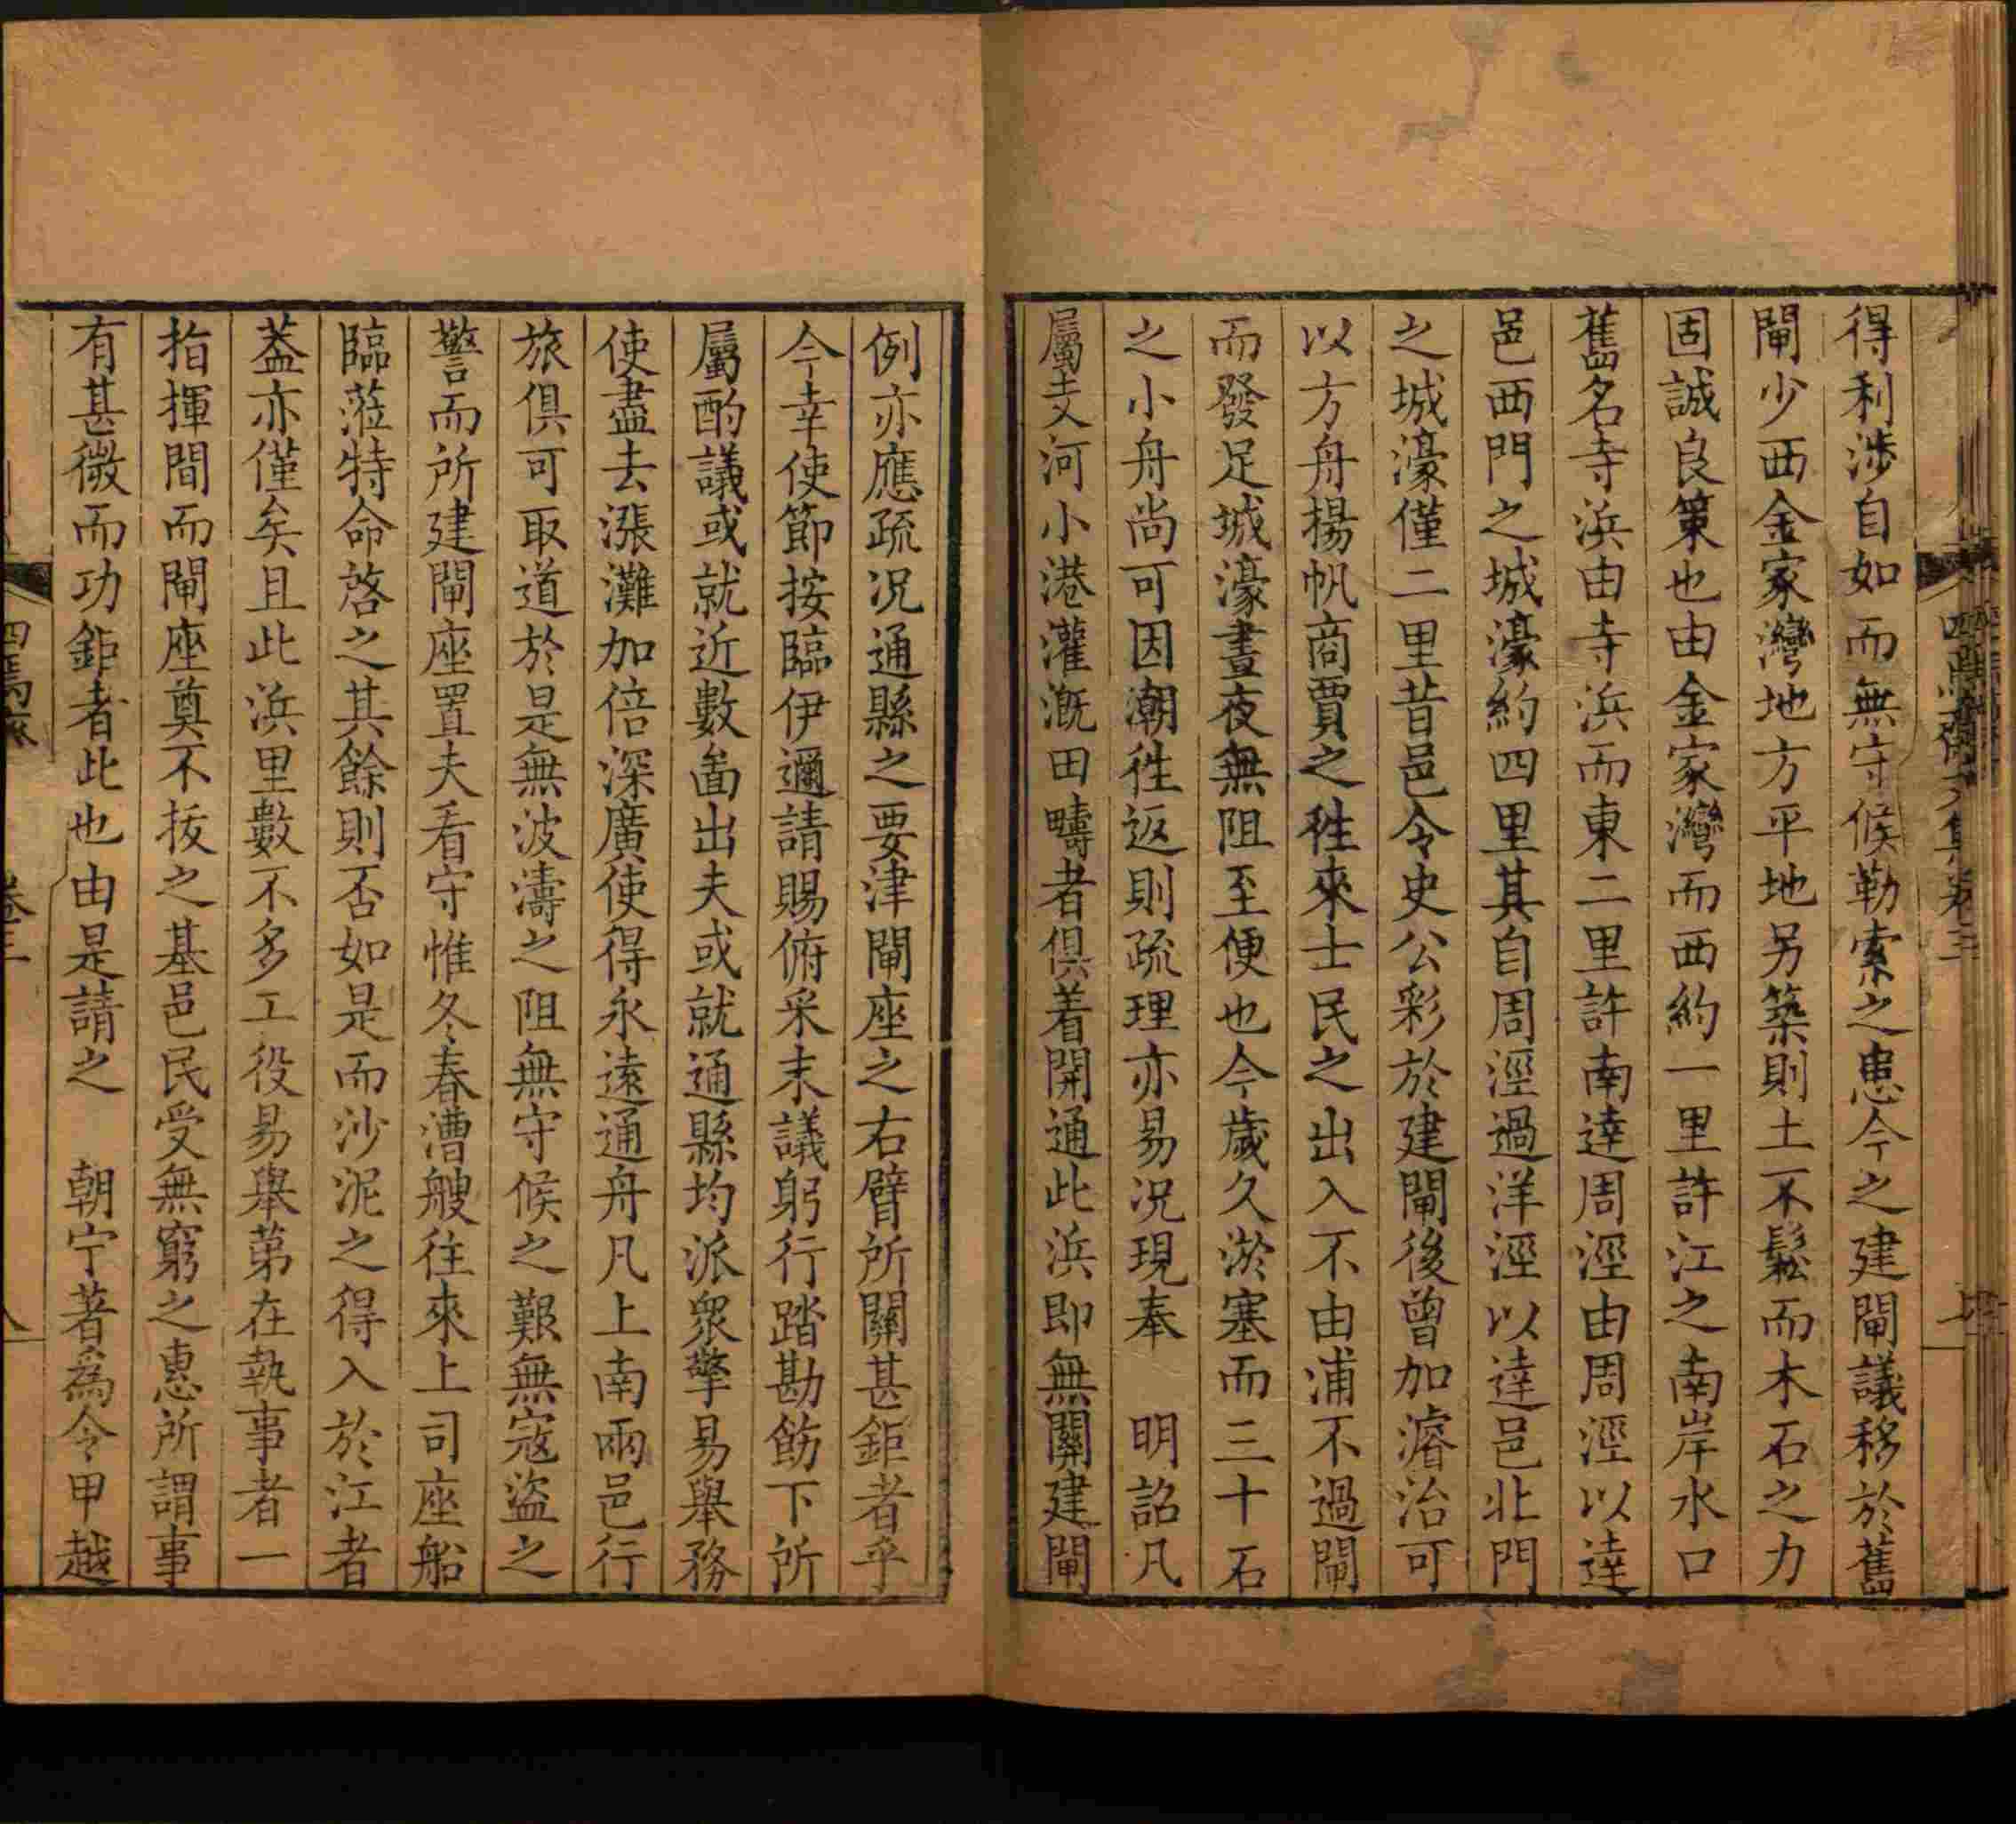 得利涉自如而無守候勒索之患今之建閘議移於舊
閘少西金家灣地方平地另築則土不鬆而木石之力
固誠良策也由金家灣而西約一里許江之南岸水口
舊名寺浜由寺浜而東二里許南達周涇由周涇以達
邑西門之城濠約四里其自周涇過洋涇以達邑北門
之城濠僅二里昔邑令史公彩於建閘後曾加濬治可
以方舟揚帆商賈之徃來士民之出入不由浦不過閘
而發足城濠晝夜無阻至便也今歲久淤塞而三十石
之小舟尚可因潮徃返則疏理亦易况現奉　明詔凡
屬支河小港灌溉田疇者俱着開通此浜即無關建閘
例亦應疏况通縣之要津閘座之右臂所關甚鉅者乎
今幸使節按臨伊邇請賜俯采末議躬行踏勘飭下所
屬酌議或就近數啚出夫或就通縣均派衆擎易舉務
使盡去漲灘加倍深廣使得永遠通舟凡上南兩邑行
旅俱可取道於是無波濤之阻無守候之艱無寇盜之
警而所建閘座置夫看守惟冬春漕艘往來上司座船
臨蒞特命啓之其餘則否如是而沙泥之得入於江者
葢亦僅矣且此浜里數不多工役易舉第在執事者一
指揮間而閘座奠不拔之基邑民受無窮之惠所謂事
有甚微而功鉅者此也由是請之　朝宁著爲令甲越